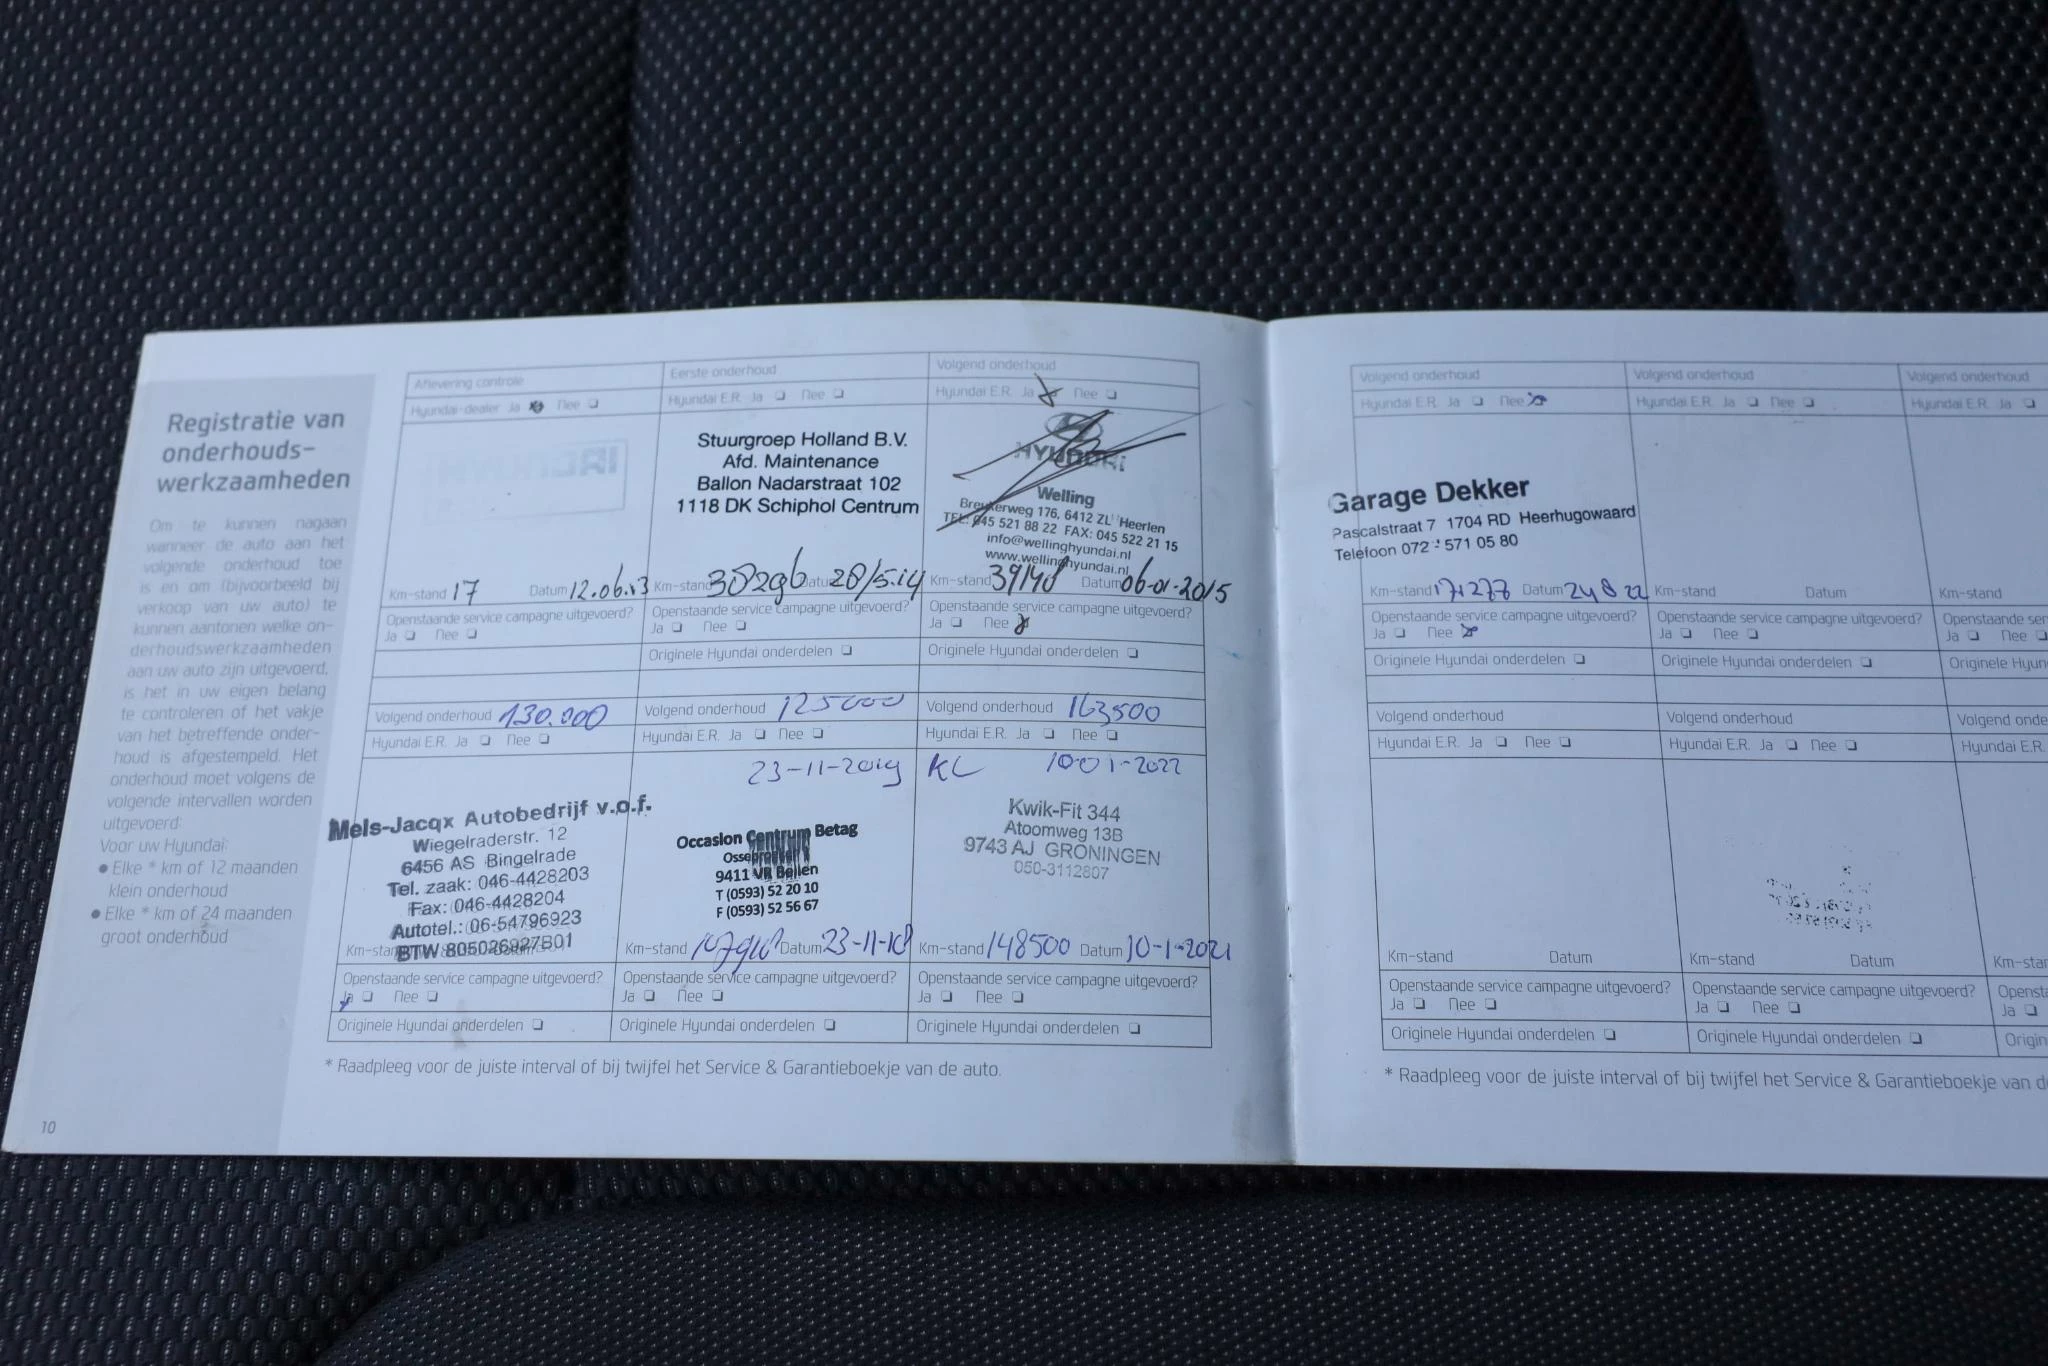 Registratie van
onderhouds-
werkzaamheden
Om te kunnen nagaan
wanneer de auto aan het
volgende onderhoud toe
is en om (bijvoorbeeld bij
verkoop van uw auto) te
kunnen aantonen welke on-
derhoudswerkzaamheden
aan uw auto zijn uitgevoerd,
is het in uw eigen belang
te controleren of het vakje
van het betreffende onder-
houd is afgestempeld. Het
onderhoud moet volgens de
volgende intervallen worden
uitgevoerd:
Voor uw Hyundai:
● Elke * km of 12 maanden
klein onderhoud
● Elke * km of 24 maanden
groot onderhoud
10
Aflevering controle
Hyundai-dealer Ja Nee
Km-stand 17 Datum 12.06.13
Openstaande service campagne uitgevoerd?
Ja Nee
Eerste onderhoud
Hyundai E.R. Ja Nee
Stuurgroep Holland B.V.
Afd. Maintenance
Ballon Nadarstraat 102
1118 DK Schiphol Centrum
Km-stand Datum 28/5.14
Openstaande service campagne uitgevoerd?
Ja Nee
Originele Hyundai onderdelen
Volgend onderhoud
Hyundai E.R. Ja Nee
HYUNDAI
Welling
Breukerweg 176, 6412 ZL Heerlen
TEL: 045 521 88 22 FAX: 045 522 21 15
info@wellinghyundai.nl
www.wellinghyundai.nl
Km-stand Datum 06-01-2015
Openstaande service campagne uitgevoerd?
Ja Nee
Originele Hyundai onderdelen
Volgend onderhoud 130.000
Hyundai E.R. Ja Nee
Mels-Jacqx Autobedrijf v.o.f.
Wiegelraderstr. 12
6456 AS Bingelrade
Tel. zaak: 046-4428203
Fax: 046-4428204
Autotel.: 06-54796923
BTW 805026927B01
Openstaande service campagne uitgevoerd?
Ja Nee
Originele Hyundai onderdelen
Volgend onderhoud 125000
Hyundai E.R. Ja Nee
23-11-2019
Occasion Centrum Betag
9411 VR Beilen
T (0593) 52 20 10
F (0593) 52 56 67
Km-stand Datum 23-11-18
Openstaande service campagne uitgevoerd?
Ja Nee
Originele Hyundai onderdelen
Volgend onderhoud 163500
Hyundai E.R. Ja Nee
KL 10-01-2022
Kwik-Fit 344
Atoomweg 13B
9743 AJ GRONINGEN
050-3112807
Km-stand 148500 Datum 10-1-2021
Openstaande service campagne uitgevoerd?
Ja Nee
Originele Hyundai onderdelen
* Raadpleeg voor de juiste interval of bij twijfel het Service & Garantieboekje van de auto.
Volgend onderhoud
Hyundai E.R. Ja Nee
Garage Dekker
Pascalstraat 7 1704 RD Heerhugowaard
Telefoon 072 - 571 05 80
Km-stand 171277 Datum 24 8 22
Openstaande service campagne uitgevoerd?
Ja Nee
Originele Hyundai onderdelen
Volgend onderhoud
Hyundai E.R. Ja Nee
Km-stand Datum
Openstaande service campagne uitgevoerd?
Ja Nee
Originele Hyundai onderdelen
Volgend onderhoud
Hyundai E.R. Ja
Km-stand
Openstaande ser
Ja Nee
Originele Hyun
Volgend onderhoud
Hyundai E.R. Ja Nee
Km-stand Datum
Openstaande service campagne uitgevoerd?
Ja Nee
Originele Hyundai onderdelen
Volgend onderhoud
Hyundai E.R. Ja Nee
Km-stand Datum
Openstaande service campagne uitgevoerd?
Ja Nee
Originele Hyundai onderdelen
Volgend onde
Hyundai E.R.
Km-star
Opensta
Ja
Origin
* Raadpleeg voor de juiste interval of bij twijfel het Service & Garantieboekje van de